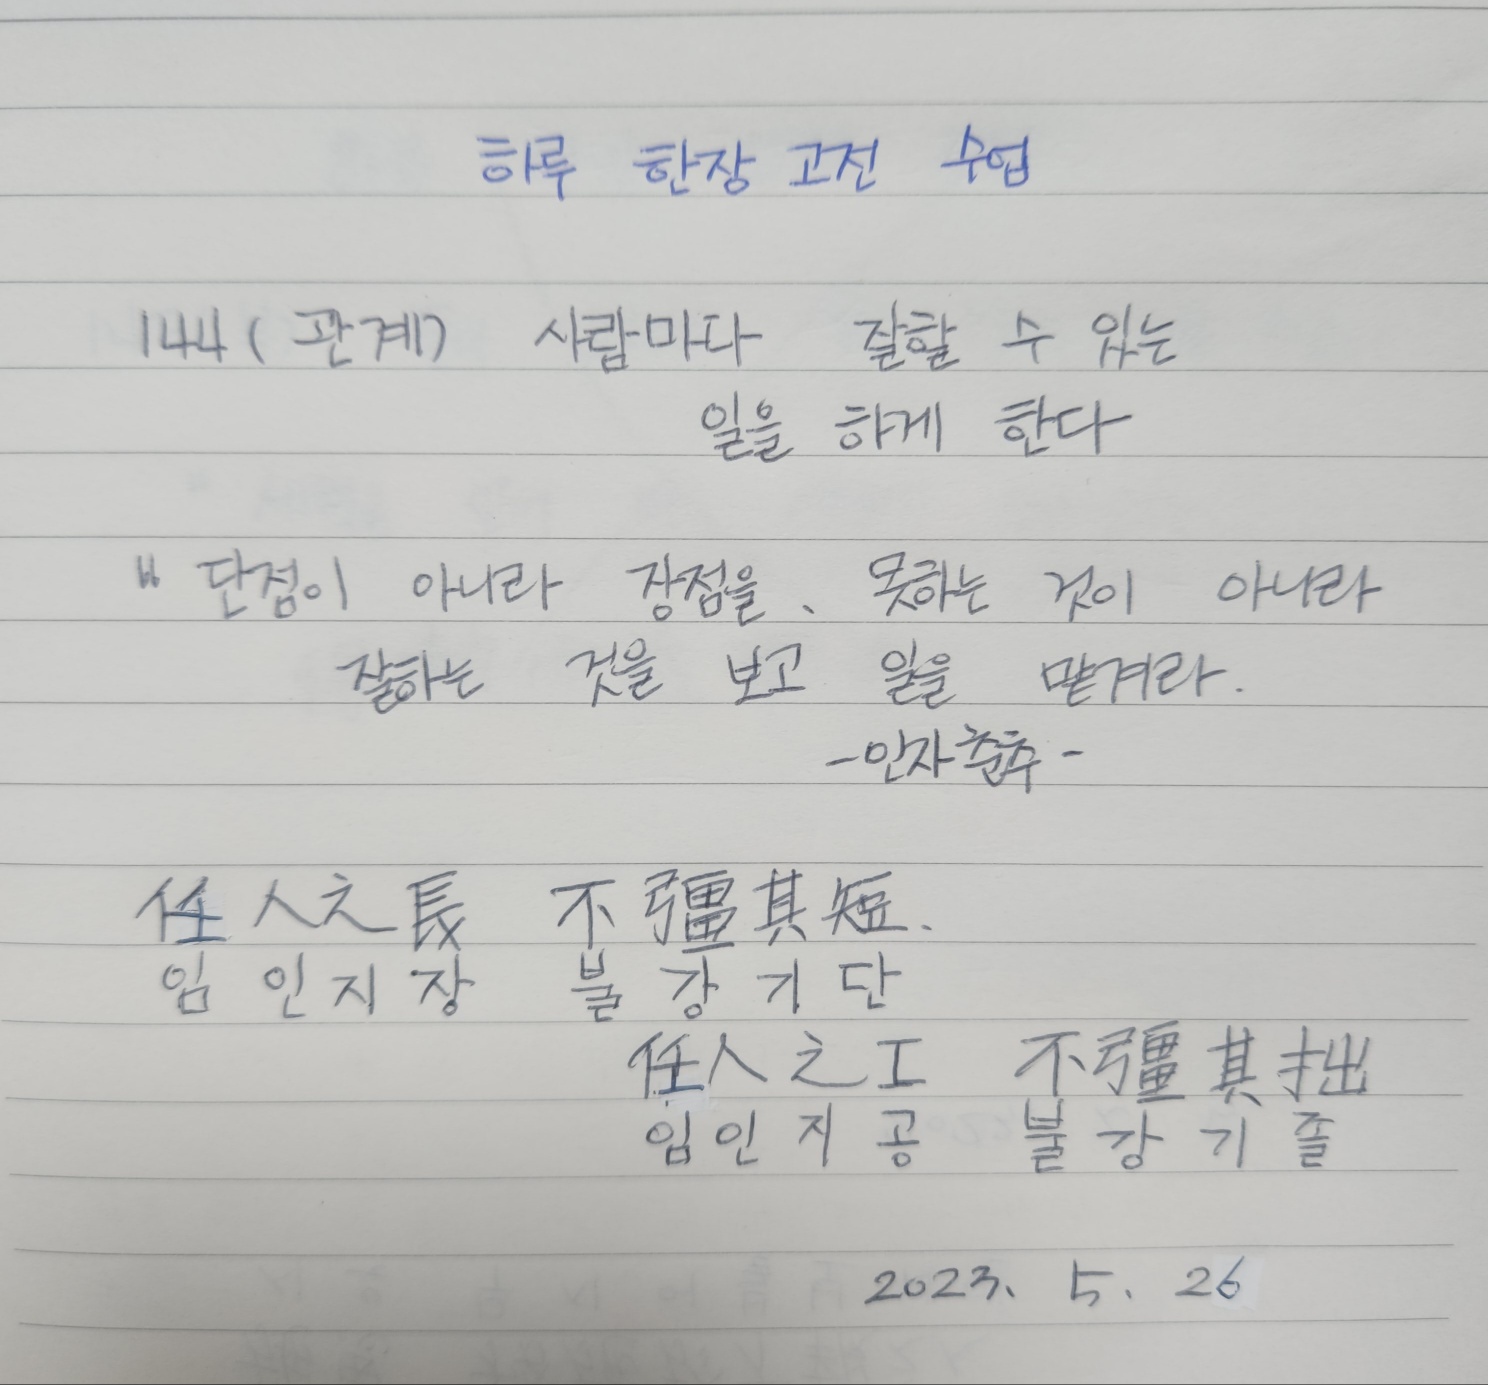 하루 한장 고전 수업
144 (관계) 사람마다 잘할 수 있는
일을 하게 한다
" 단점이 아니라 장점을, 못하는 것이 아니라
잘하는 것을 보고 일을 맡겨라.
-안자춘추-
任人之長 不彊其短.
임 인 지 장 불 강 기 단
任人之工 不彊其拙
임 인 지 공 불 강 기 졸
2023. 5. 26